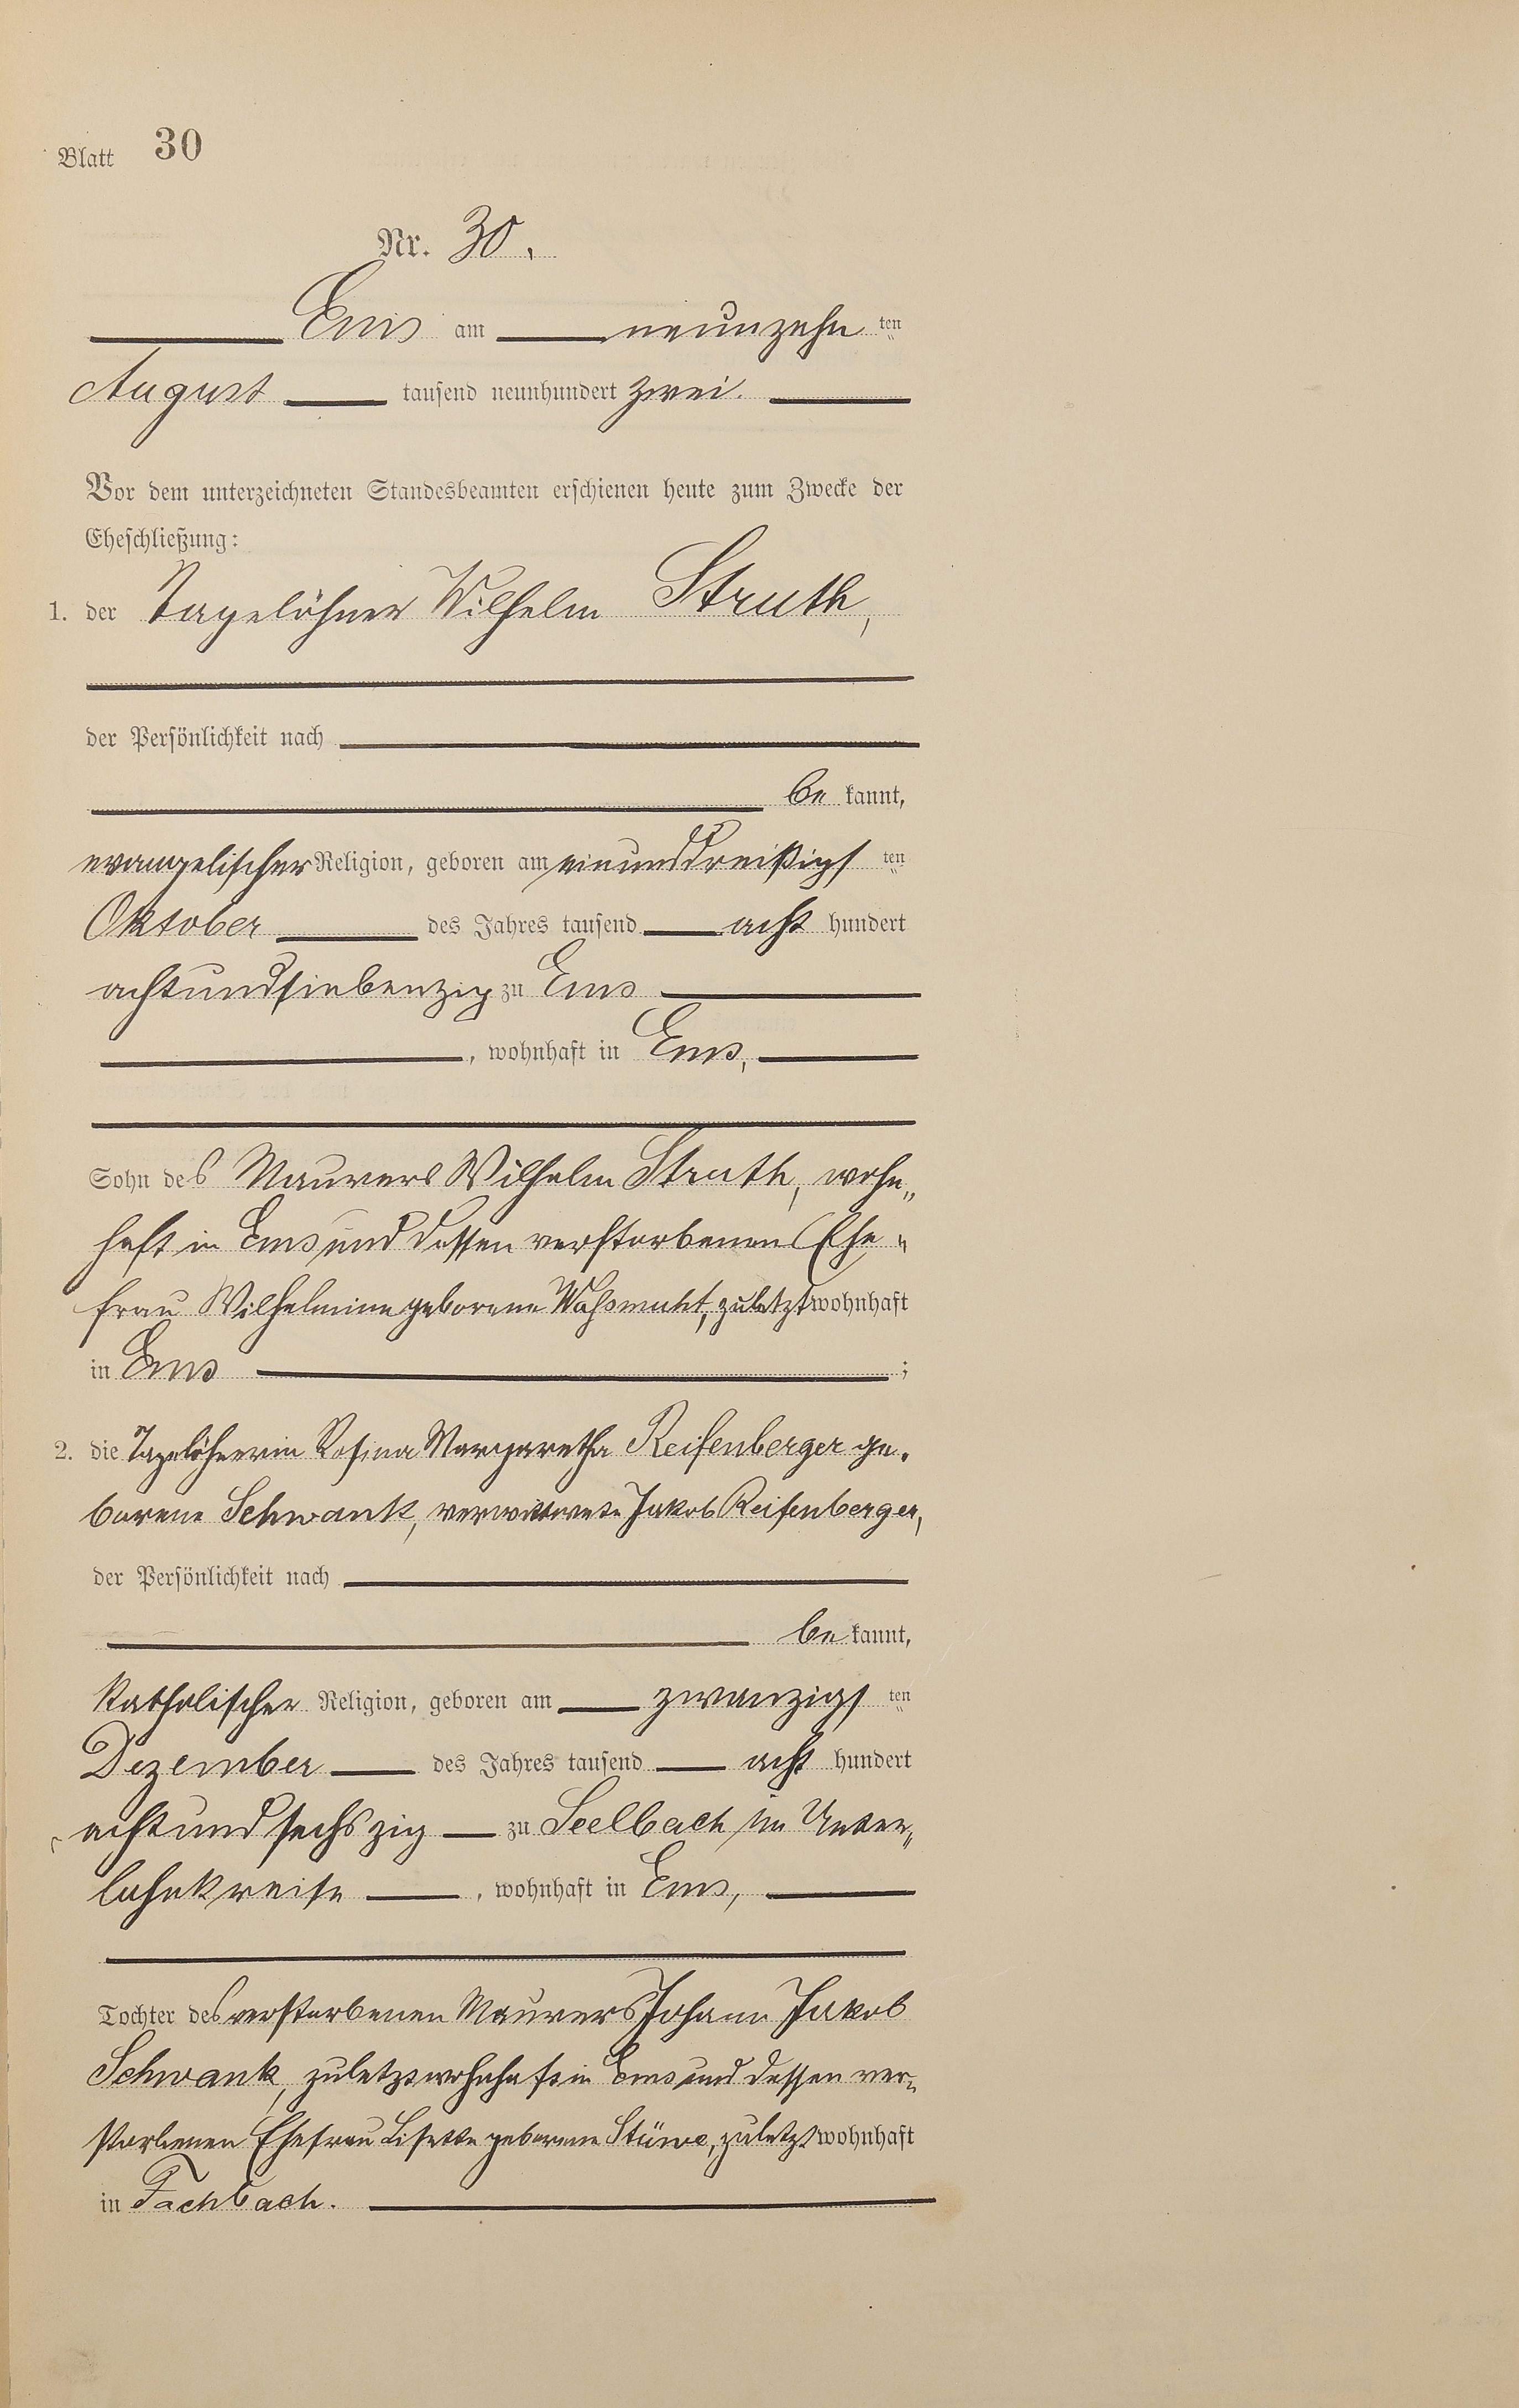 Blatt 30
Nr. 30.
Ems am neunzehn ten
August tausend neunhundert zwei.
Vor dem unterzeichneten Standesbeamten erschienen heute zum Zwecke der
Eheschließung:
1. der Tagelöhner Wilhelm Struth,
der Persönlichkeit nach
be kannt,
evangelischer Religion, geboren am einunddreißigs ten
Oktober des Jahres tausend acht hundert
achtundsiebenzig zu Ems
, wohnhaft in Ems,
Sohn des Maurers Wilhelm Struth, wohn„
haft in Ems und dessen verstorbenen Ehe„
frau Wilhelmine geborene zuletzt wohnhaft
in Ems ;
2. die Tagelöhnerin Rosina Margaretha Reifenberger ge„
borene Schwank, verwittwete Jakob Reifenberger,
der Persönlichkeit nach
be kannt,
katholischer Religion, geboren am zwanzigs ten
Dezember des Jahres tausend acht hundert
achtundsechszig zu Seelbach im Unter„
lahnkreise , wohnhaft in Ems,
Tochter des verstorbenen Maurers Johann Jakob
Schwank, zuletzt wohnhaft in Ems und dessen ver„
storbenen Ehefrau Lisette geborene Stüwe, zuletzt wohnhaft
in Fachbach.